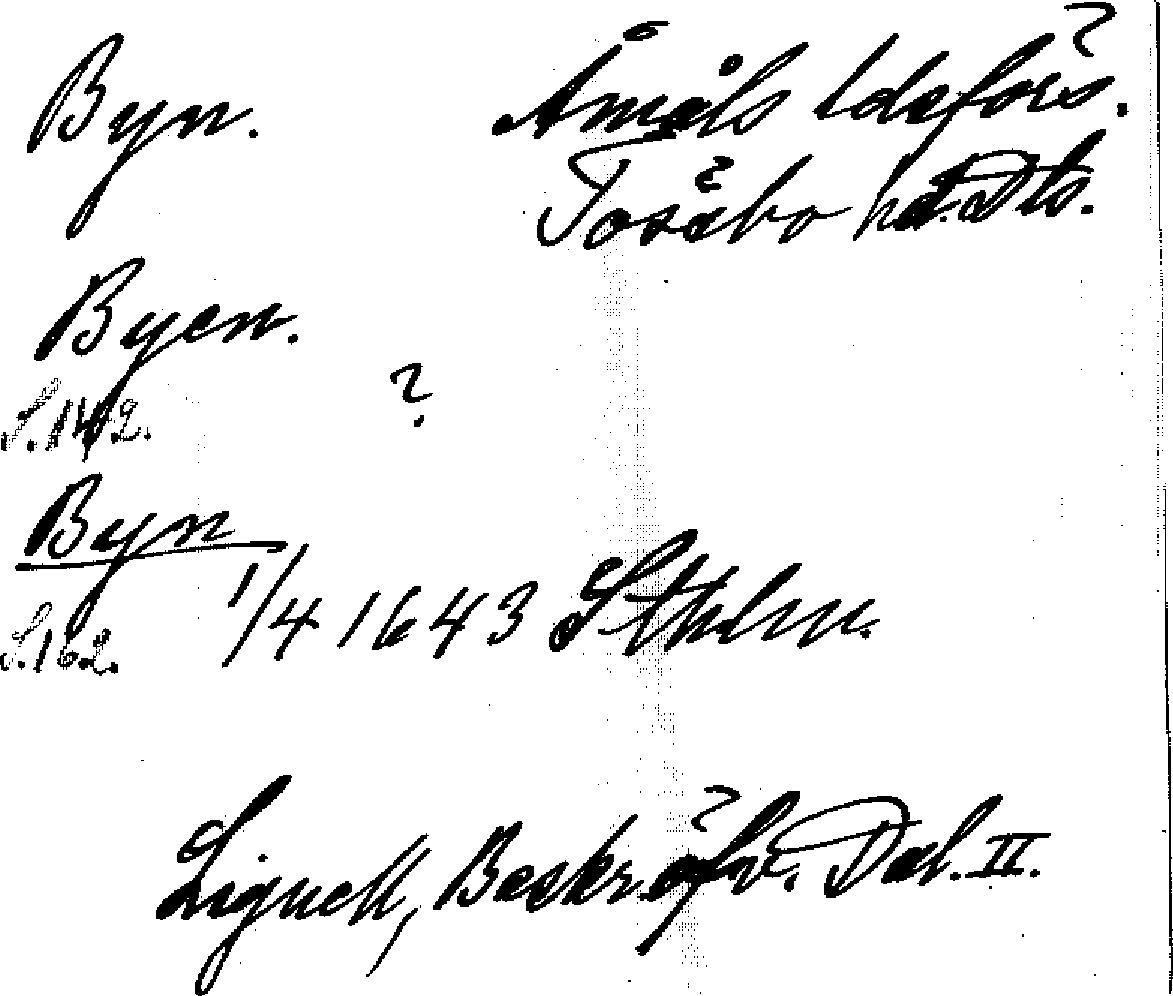 Byn. Åmåls ldsförs.
Tössbo hd. Dls.
Byen.
S.142. ?
Byn
S.162. 1/4 1643 Sthlm.
Lignell, Beskr. öfv. Dal. II.